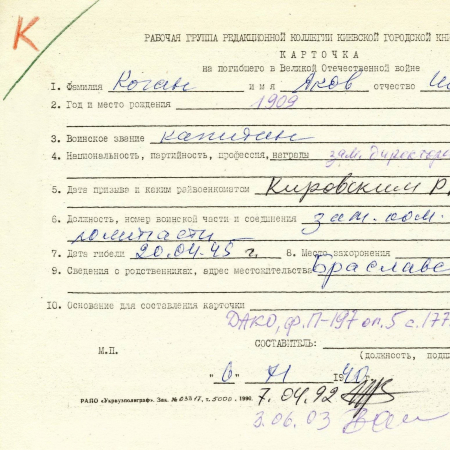 К
РАБОЧАЯ ГРУППА РЕДАКЦИОННОЙ КОЛЛЕГИИ КИЕВСКОЙ ГОРОДСКОЙ КНИ
КАРТОЧКА
на погибшего в Великой Отечественной войне
1. Фамилия Коган имя Яков отчество
2. Год и место рождения 1909
3. Воинское звание капитан
4. Национальность, партийность, профессия, награды зам. директора
5. Дата призыва и каким райвоенкоматом Кировским р.
6. Должность, номер воинской части и соединения зам. ком.
по
7. Дата гибели 20.04.45 г. 8. Место захоронения
9. Сведения о родственниках, адрес местожительства Браславс
10. Основание для составления карточки
ДАКО, ф. П-197 оп. 5 с. 177
СОСТАВИТЕЛЬ:
М.П. (должность, подп
"6" XI 1990
РАПО «Укрвузполиграф». Зак. № т. 5000. 1990. 7.04.92
3.06.03